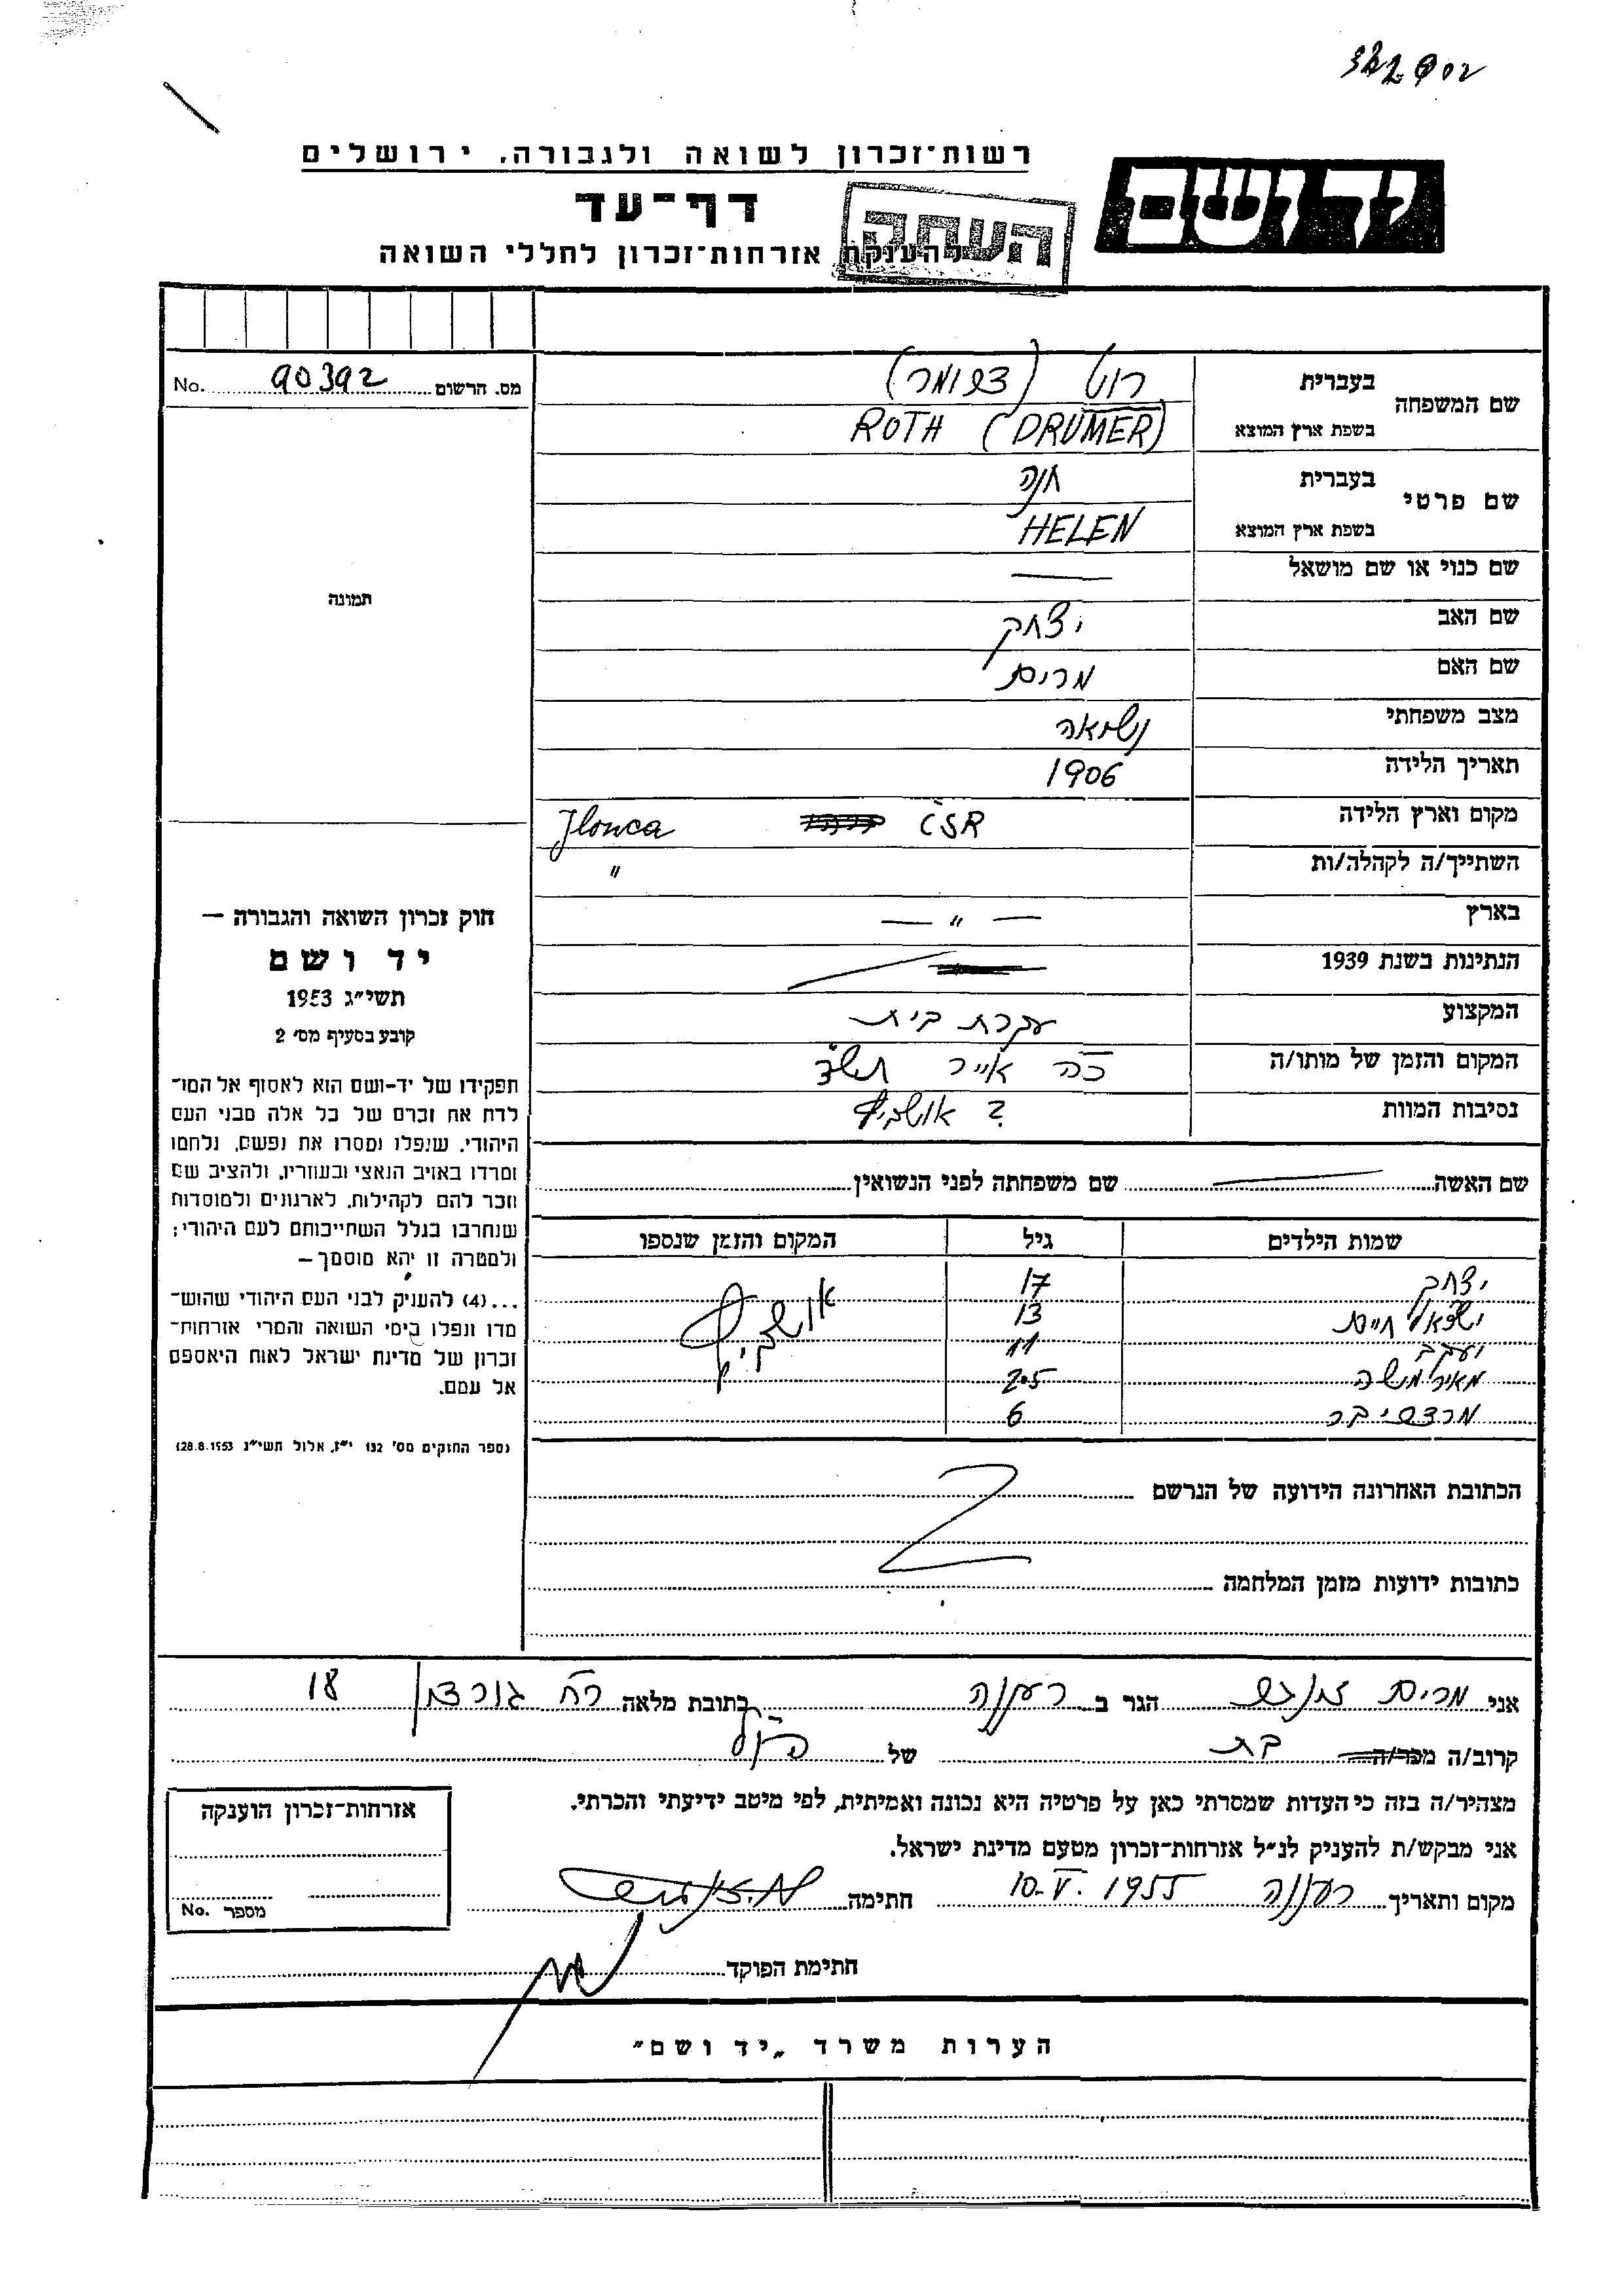 רשות־זכרון לשואה ולגבורה, ירושלים
יד ושם
דף־עד
העתק
להענקת אזרחות־זכרון לחללי השואה
מס. הרשום 90392 No.
שם המשפחה
בעברית רוט
בשפת ארץ המוצא ROTH (DRUMER)
שם פרטי
בעברית חנה
בשפת ארץ המוצא HELEN
שם כנוי או שם מושאל —
שם האב יצחק
שם האם מרים
מצב משפחתי נשואה
תאריך הלידה 1906
מקום וארץ הלידה ČSR Jlonca
השתייך/ה לקהלה/ות "
בארץ — " —
הנתינות בשנת 1939
המקצוע עקרת בית
המקום והזמן של מותו/ה כ"ה אייר תש"ד
נסיבות המוות ? אושביץ
שם האשה שם משפחתה לפני הנשואין
שמות הילדים גיל המקום והזמן שנספו
יצחק 17 אושביץ
ישראל חיים 13
יעקב 11
מאיר משה 2.5
מרדכי דב 6
הכתובת האחרונה הידועה של הנרשם
כתובות ידועות מזמן המלחמה
תמונה
חוק זכרון השואה והגבורה —
יד ושם
תשי״ג 1953
קובע בסעיף מס׳ 2
תפקידו של יד-ושם הוא לאסוף אל המו־
לדת את זכרם של כל אלה מבני העם
היהודי, שנפלו ומסרו את נפשם, נלחמו
ומרדו באויב הנאצי ובעוזריו, ולהציב שם
וזכר להם לקהילות, לארגונים ולמוסדות
שנחרבו בגלל השתייכותם לעם היהודי;
ולמטרה זו יהא מוסמך —
...(4) להעניק לבני העם היהודי שהוש־
מדו ונפלו בימי השואה והמרי אזרחות־
זכרון של מדינת ישראל לאות היאספם
אל עמם.
(ספר החוקים מס׳ 132 י״ז, אלול תשי״ג 28.8.1953)
אני מרים הגר ב רעננה כתובת מלאה רח גורדון 18
קרוב/ה בת של הנ"ל
מצהיר/ה בזה כי העדות שמסרתי כאן על פרטיה היא נכונה ואמיתית, לפי מיטב ידיעתי והכרתי.
אני מבקש/ת להעניק לנ״ל אזרחות־זכרון מטעם מדינת ישראל.
מקום ותאריך רעננה 10.V.1955 חתימה
חתימת הפוקד
אזרחות־זכרון הוענקה
מספר No.
הערות משרד „יד ושם״